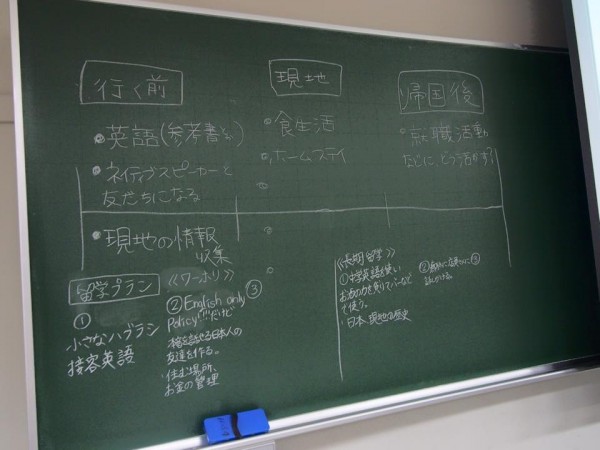 行く前
・英語(参考書
・ネイティブスピーカーと
友だちになる
・現地の情報
収集
現地
・食生活
・ホームステイ
帰国後
・就職活動
などに、どう活かす?
留学プラン
①
小さなハブラシ
接客英語
《ワーホリ》
② English only ③
Policy だけど
を話せる日本人の
友達を作る。
・住む場所、
お金の管理
《長期留学》
①中学英語を使い
で使う。
日本、現地の歴史
② ③
話しかける。